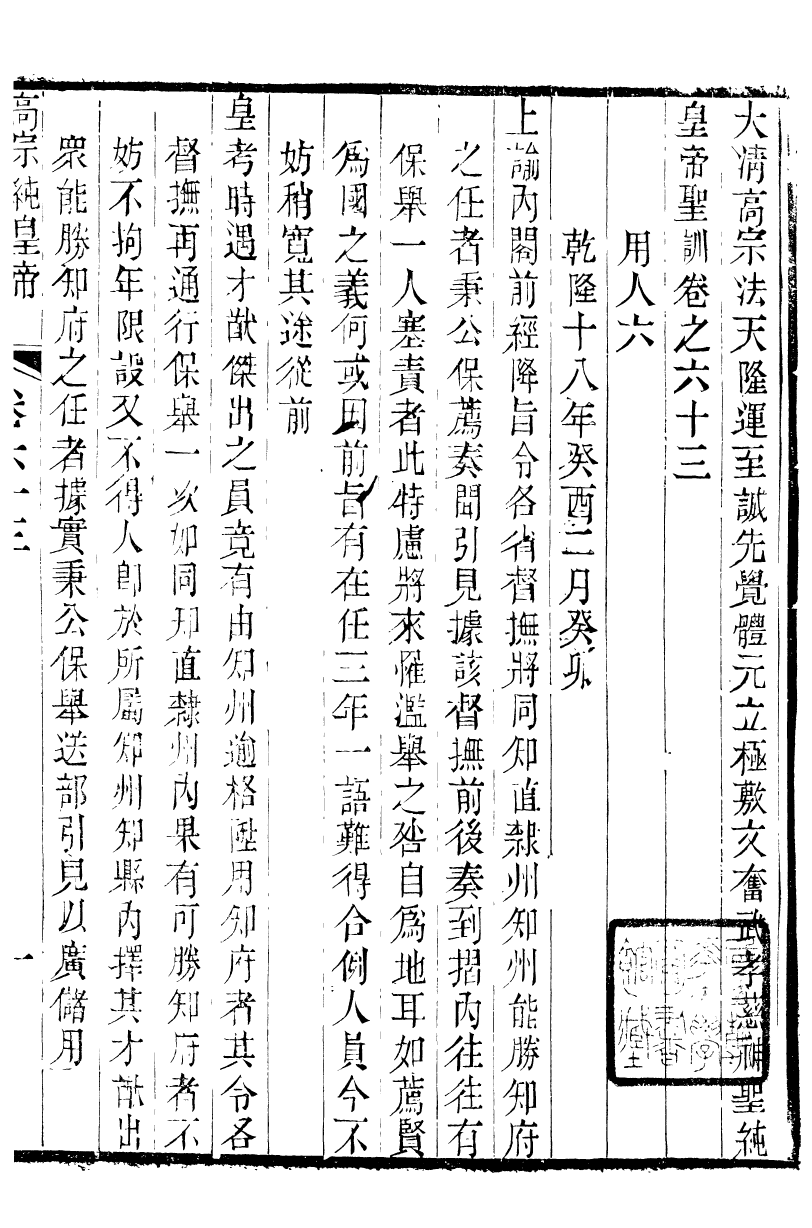 大凊高宗法天隆運至誠先覺體元立極敷文奮武孝慈神聖純
皇帝聖訓卷之六十三
用人六
乾隆十八年癸酉二月癸卯
上諭內閣前經降旨令各省督撫將同知直隸州知州能勝知府
之任者秉公保薦奏聞引見據該督撫前後奏到摺內往往有
保舉一人塞責者此特慮將來罹濫舉之咎自爲地耳如薦賢
爲國之義何或因前旨有在任三年一語難得合例人員今不
妨稍寬其途從前
皇考時遇才猷傑出之員竟有由知州逾格陞用知府者其令各
督撫再通行保舉一次如同知直隸州內果有可勝知府者不
妨不拘年限設又不得人卽於所屬知州知縣內擇其才猷出
衆能勝知府之任者據實秉公保舉送部引見以廣儲用
高宗純皇帝 卷六十三 一